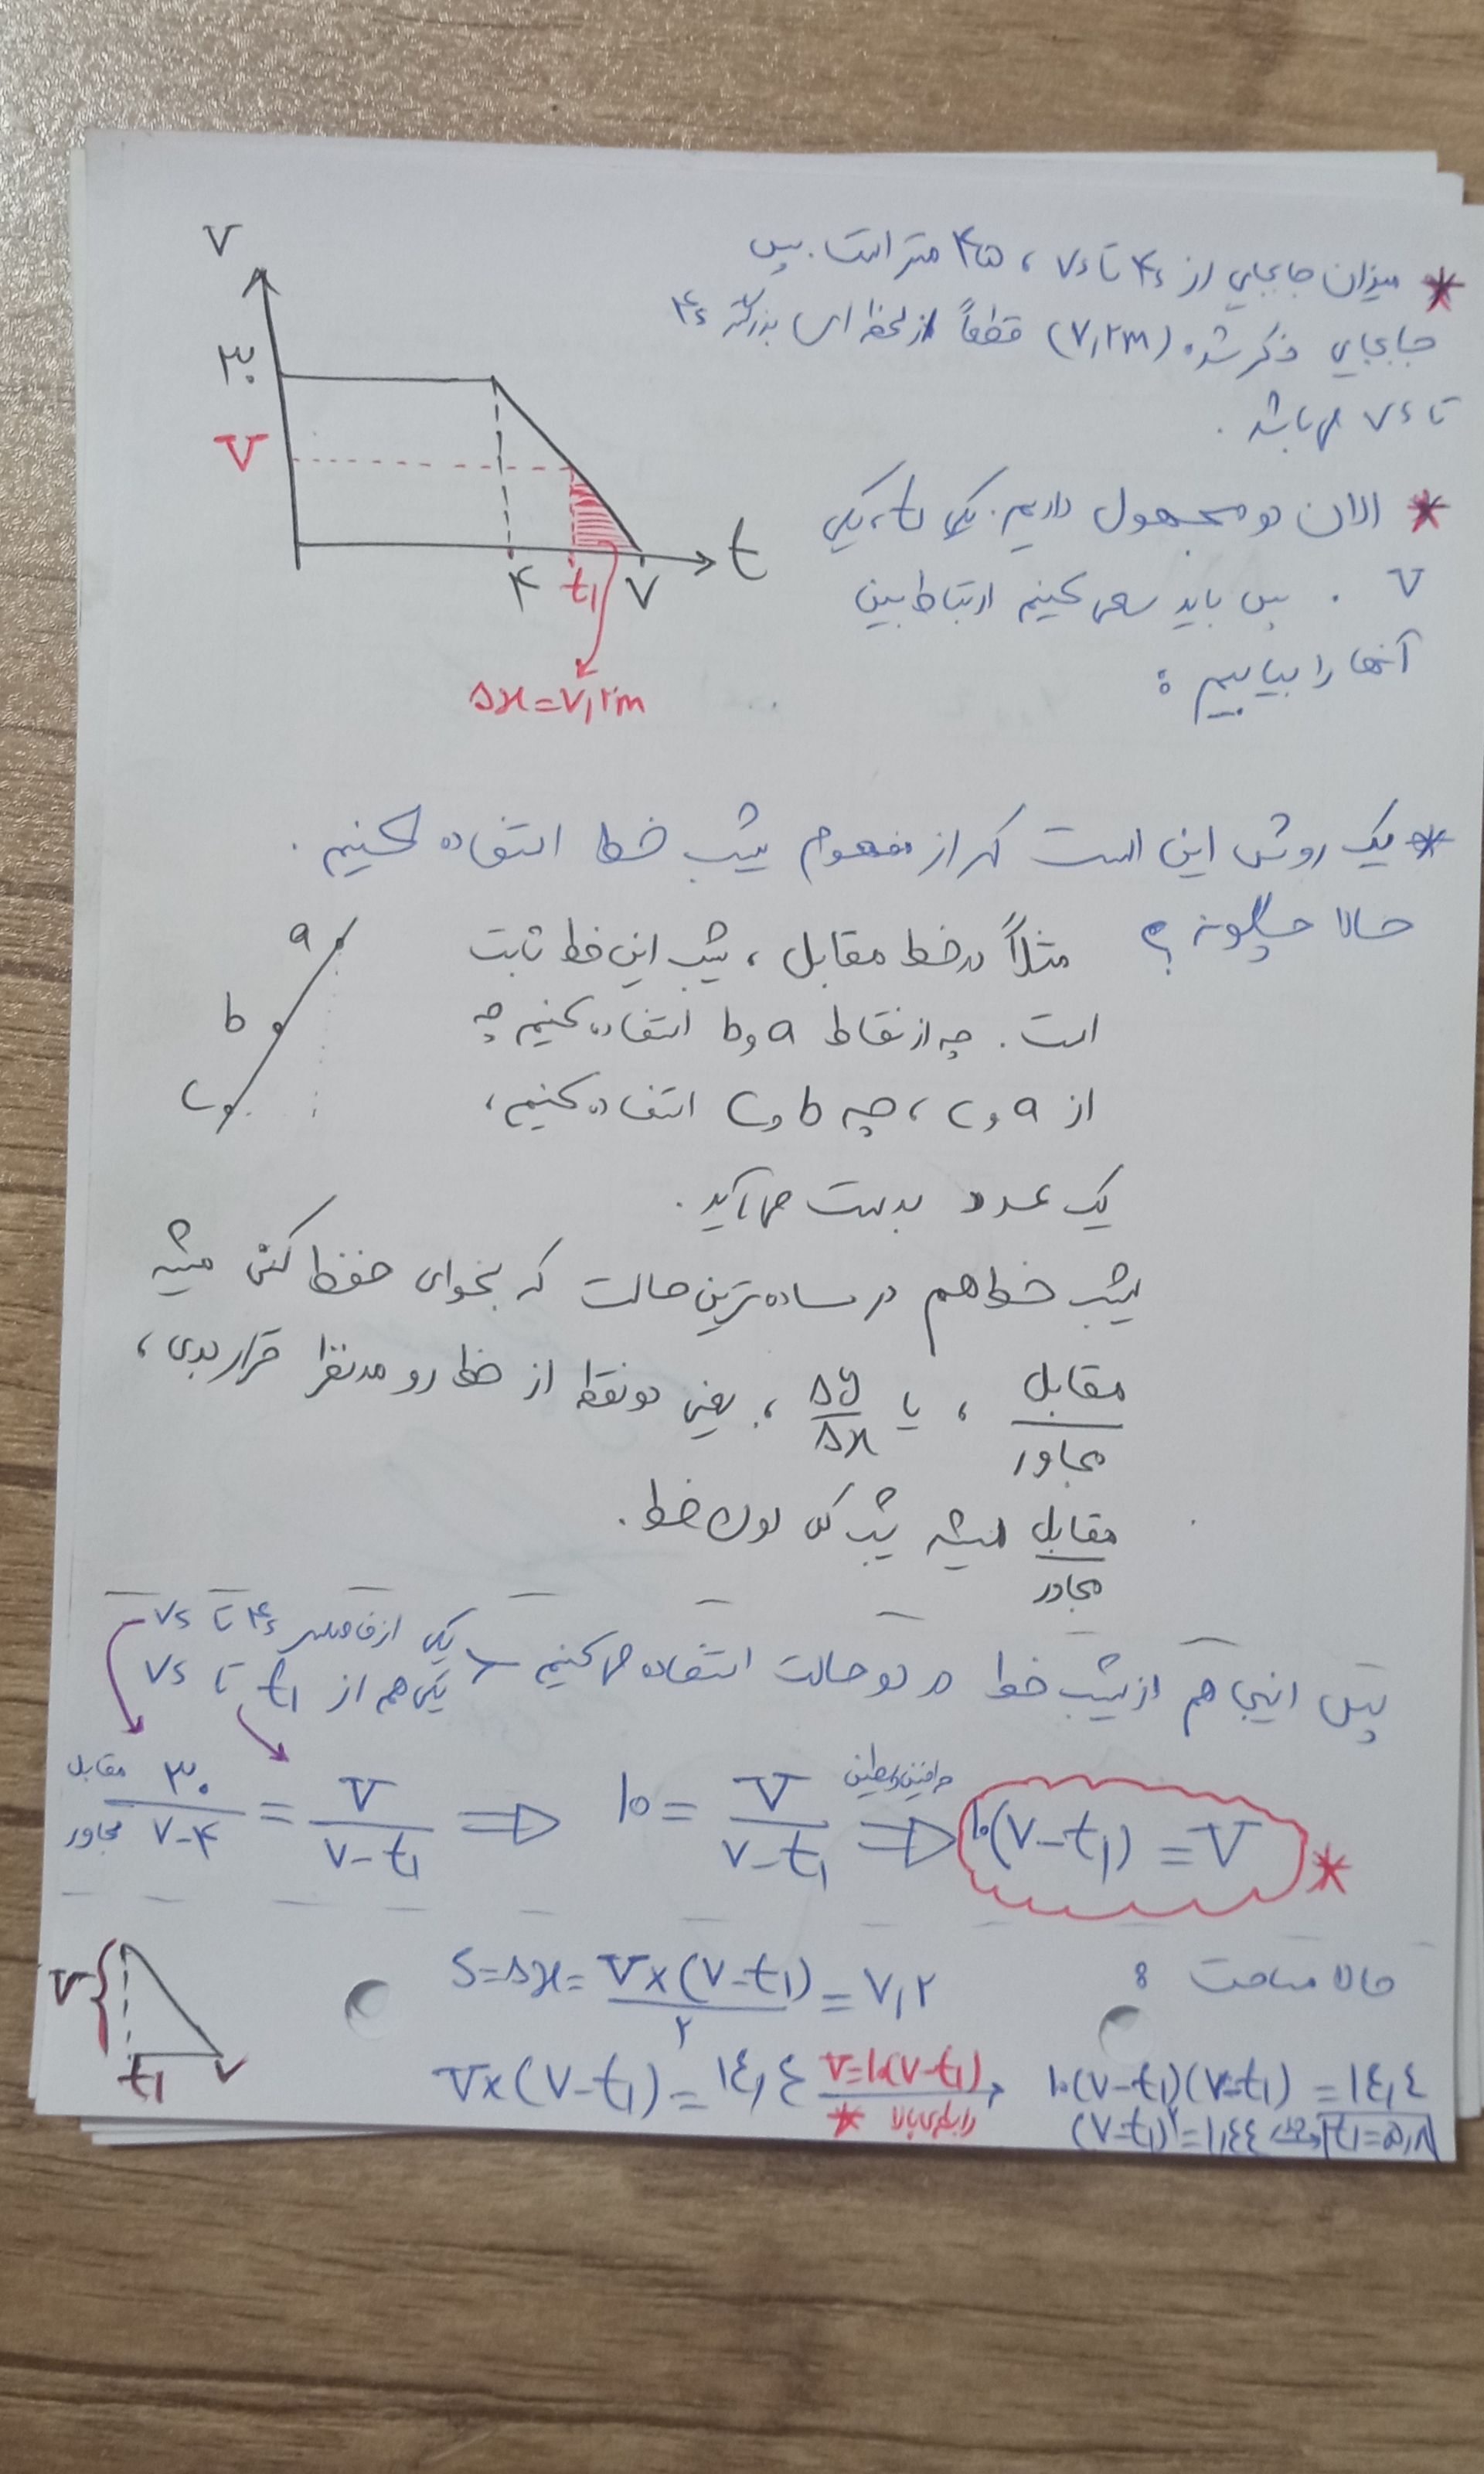 * میزان جابجایی از ۴s تا ۷s ، ۴۵ متر است. پس
جابجایی ذکر شده (۷٫۲m) قطعاً از لحظه ای بزرگتر ۴s
تا ۷s می باشد .
V
۳۰
V
۴
t₁
۷
t
Δx=۷٫۲m
* الان دو مجهول داریم. یکی t₁، یکی
V . پس باید سعی کنیم ارتباط بین
آنها را بیابیم :
* یک روش این است که از مفهوم شیب خط استفاده کنیم .
حالا چگونه ؟
مثلاً در خط مقابل ، شیب این خط ثابت
است . چه از نقاط a و b استفاده کنیم چه
از a و c ، چه b و c استفاده کنیم ،
یک عدد بدست می آید .
a
b
c
شیب خط هم در ساده ترین حالت که بخوای حفظ کنی میشه
مقابل/مجاور ، یا Δy/Δx ، یعنی دو نقطه از خط رو مدنظر قرار بدی ،
مقابل/مجاور میشه شیب کل اون خط .
پس اینجا هم از شیب خط در دو حالت استفاده می کنیم
یکی از فاصله ۴s تا ۷s
یکی هم از t₁ تا ۷s
مقابل/مجاور ۳۰/(۷-۴) = V/(۷-t₁) ⇒ ۱۰ = V/(۷-t₁) طرفین وسطین ⇒ ۱۰(۷-t₁) = V *
حالا مساحت :
S=Δx= V×(۷-t₁)/۲ = ۷٫۲
V
t₁
۷
V×(۷-t₁) = ۱٤٫٤ V=۱۰(۷-t₁) رابطه ی بالا * ۱۰(۷-t₁)(۷-t₁) = ۱٤٫٤
(۷-t₁)²=۱٫٤٤ t₁=۵٫۸